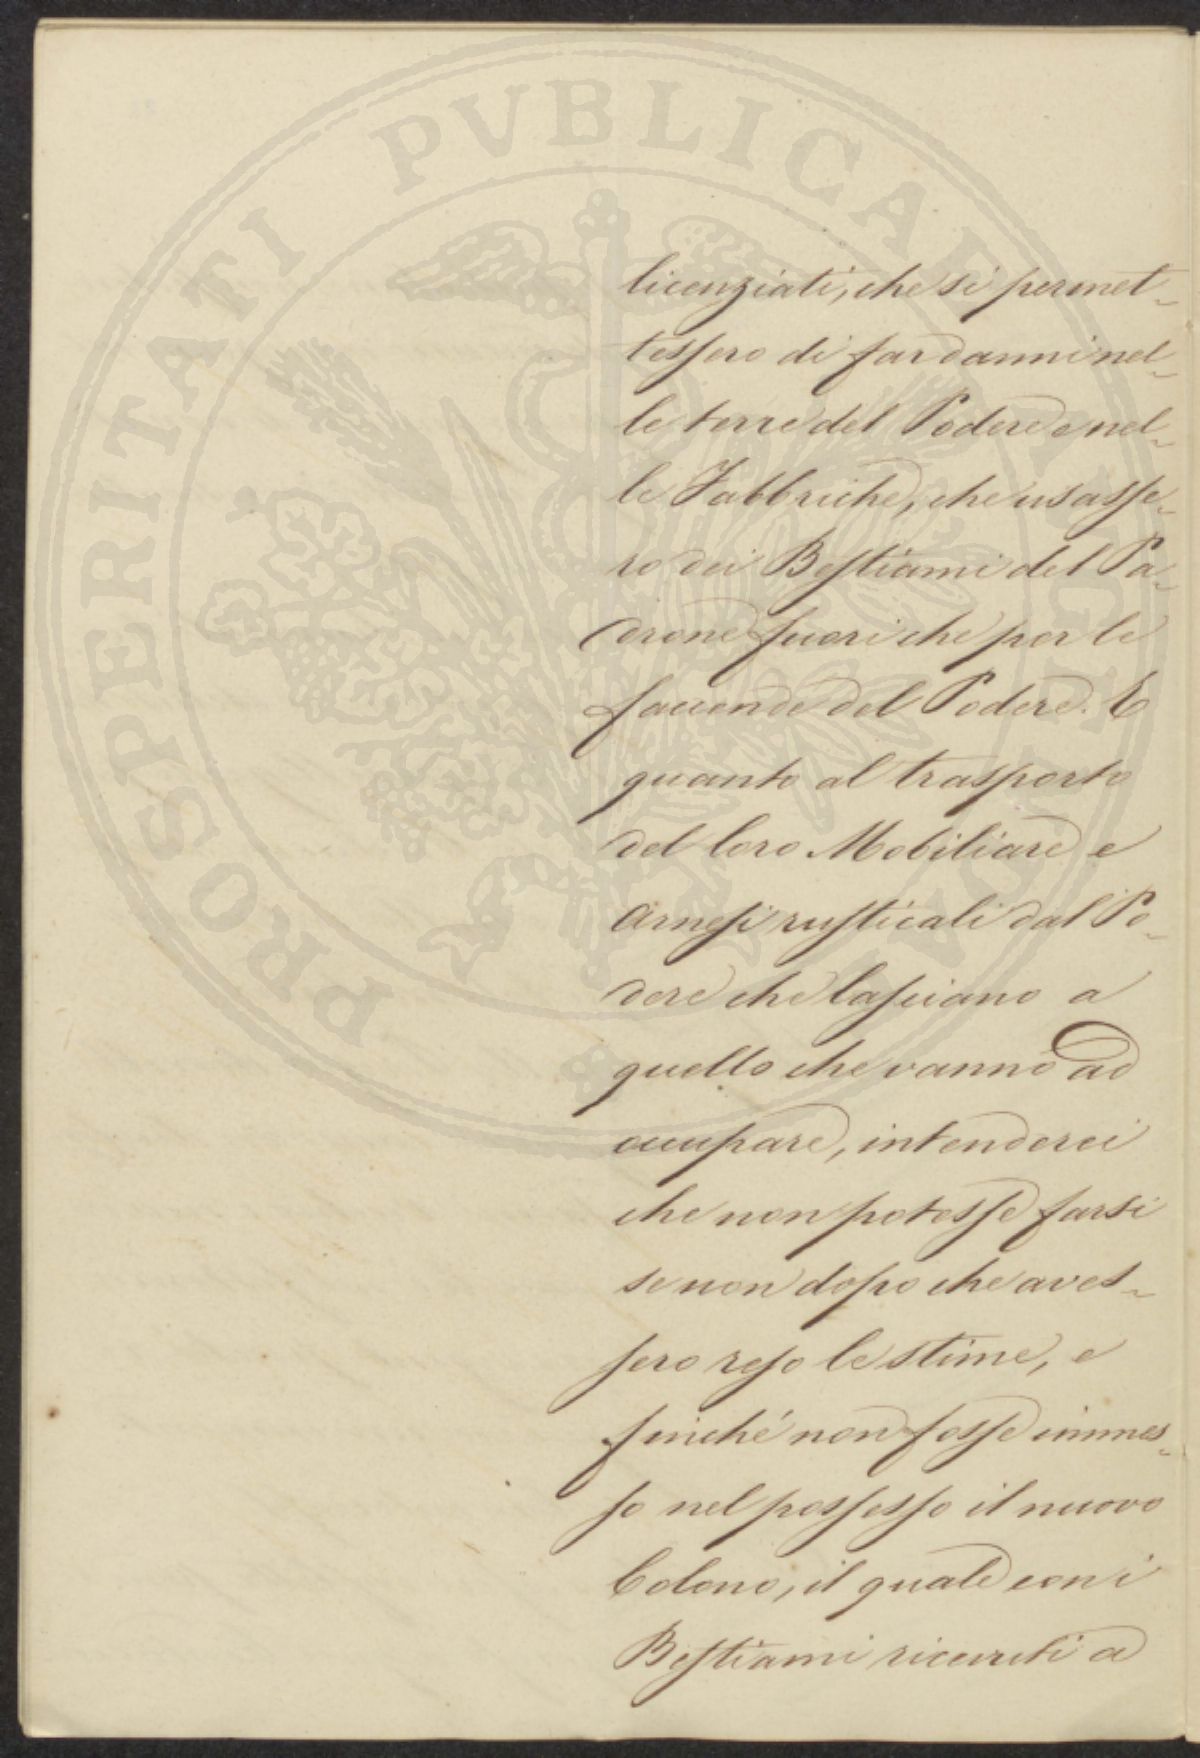 licenziati, che si permet-
tessero di far danni nel-
le terre del Podere e nel-
le Fabbriche, che usasse-
ro dei Bestiami del Pa-
drone fuori che per le
faccende del Podere. E
quanto al trasporto
del loro Mobiliare e
Arnesi rusticali dal Po-
dere che lasciano a
quello che vanno ad
occupare, intenderei
che non potesse farsi
se non dopo che aves-
sero reso le stime, e
finché non fosse immes-
so nel possesso il nuovo
Colono, il quale con i
Bestiami ricevuti a
PROSPERITATI PVBLICAE AVGENDAE